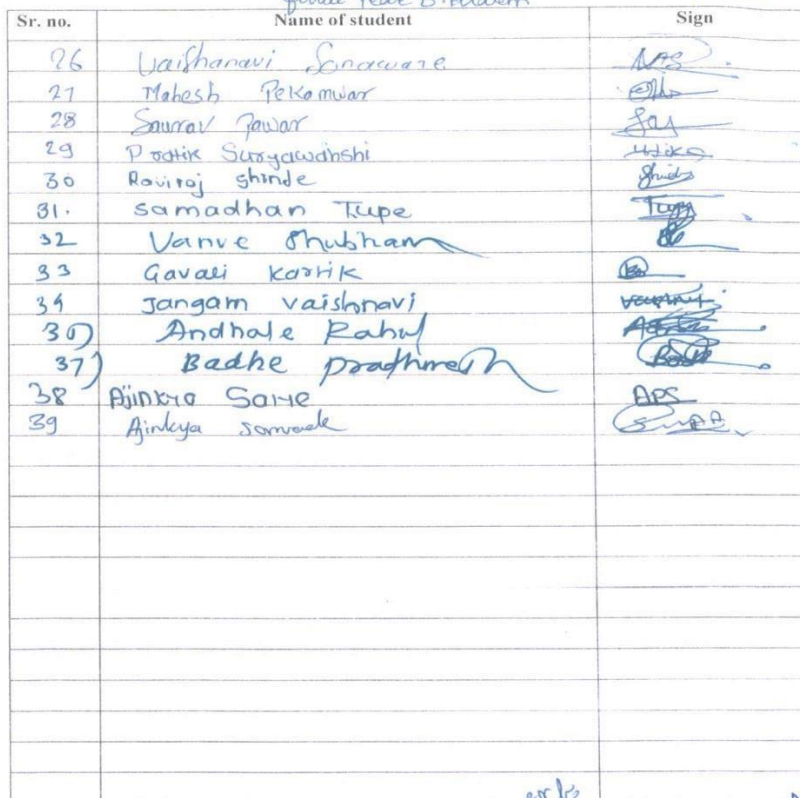 Final Year B.Pharm
Sr. no. Name of student Sign
26 Vaishanavi Sonaware
27 Mahesh Pekamwar
28 Saurav Pawar
29 Pratik Suryawanshi
30 Raviraj Shinde
31. Samadhan Tupe Tupe
32 Vanve Shubham
33 Gavali Kartik
34 Jangam Vaishnavi
36) Andhale Rahul
37) Badhe Pradhmesh
38 Ajinkya Sane APS
39 Ajinkya